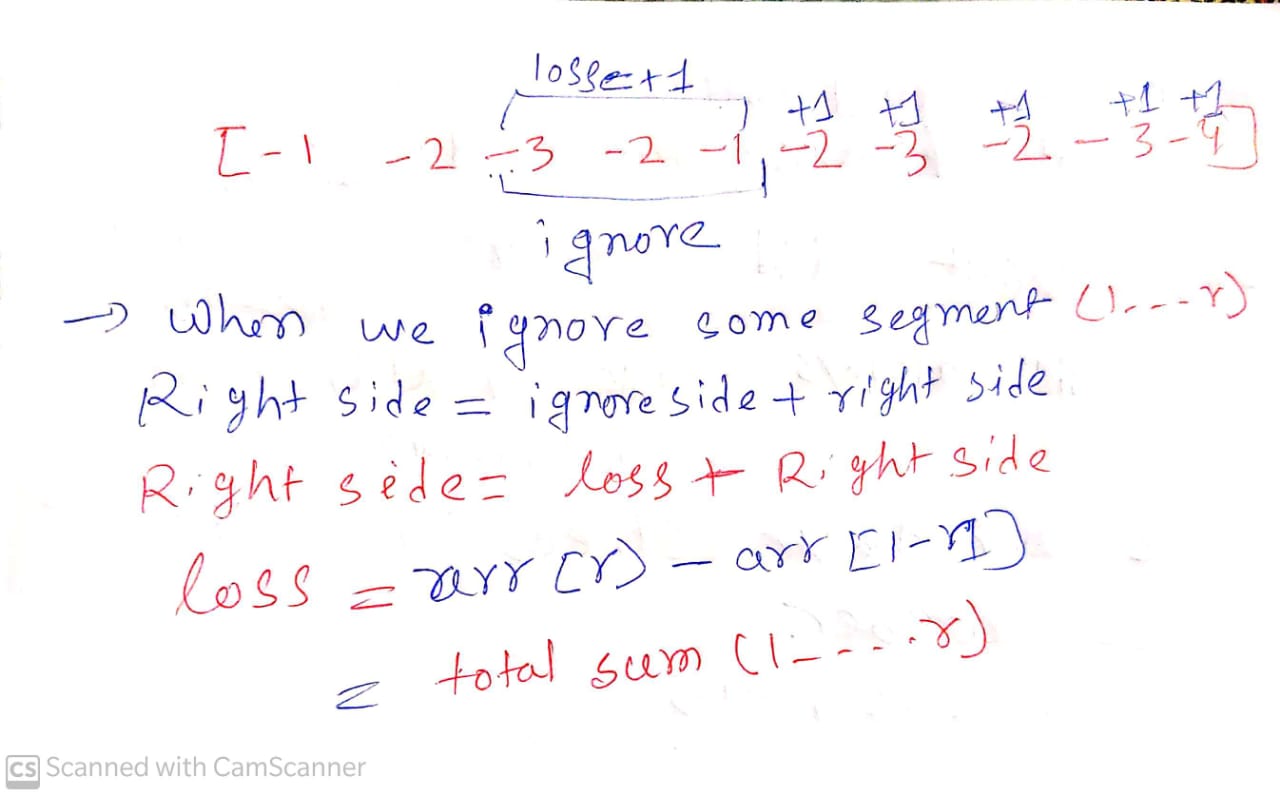 losse+1
+1 +1 +1 +1 +1
[-1 -2 -3 -2 -1, -2 -3 -2 -3 -4]
ignore
→ When we ignore some segment (l---r)
Right side = ignore side + right side
Right side = loss + Right side
loss = arr [r] - arr [l-1]
= total sum (l----r)
CS Scanned with CamScanner